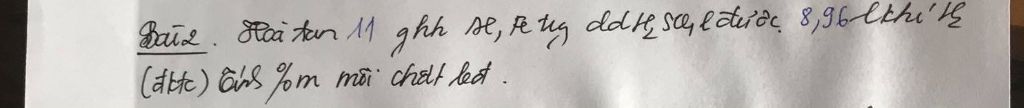 Bài 2. Hoà tan 11 g hh Al, Fe tg dd H2SO4 l được 8,96 l khí H2
(đktc) tính %m mỗi chất